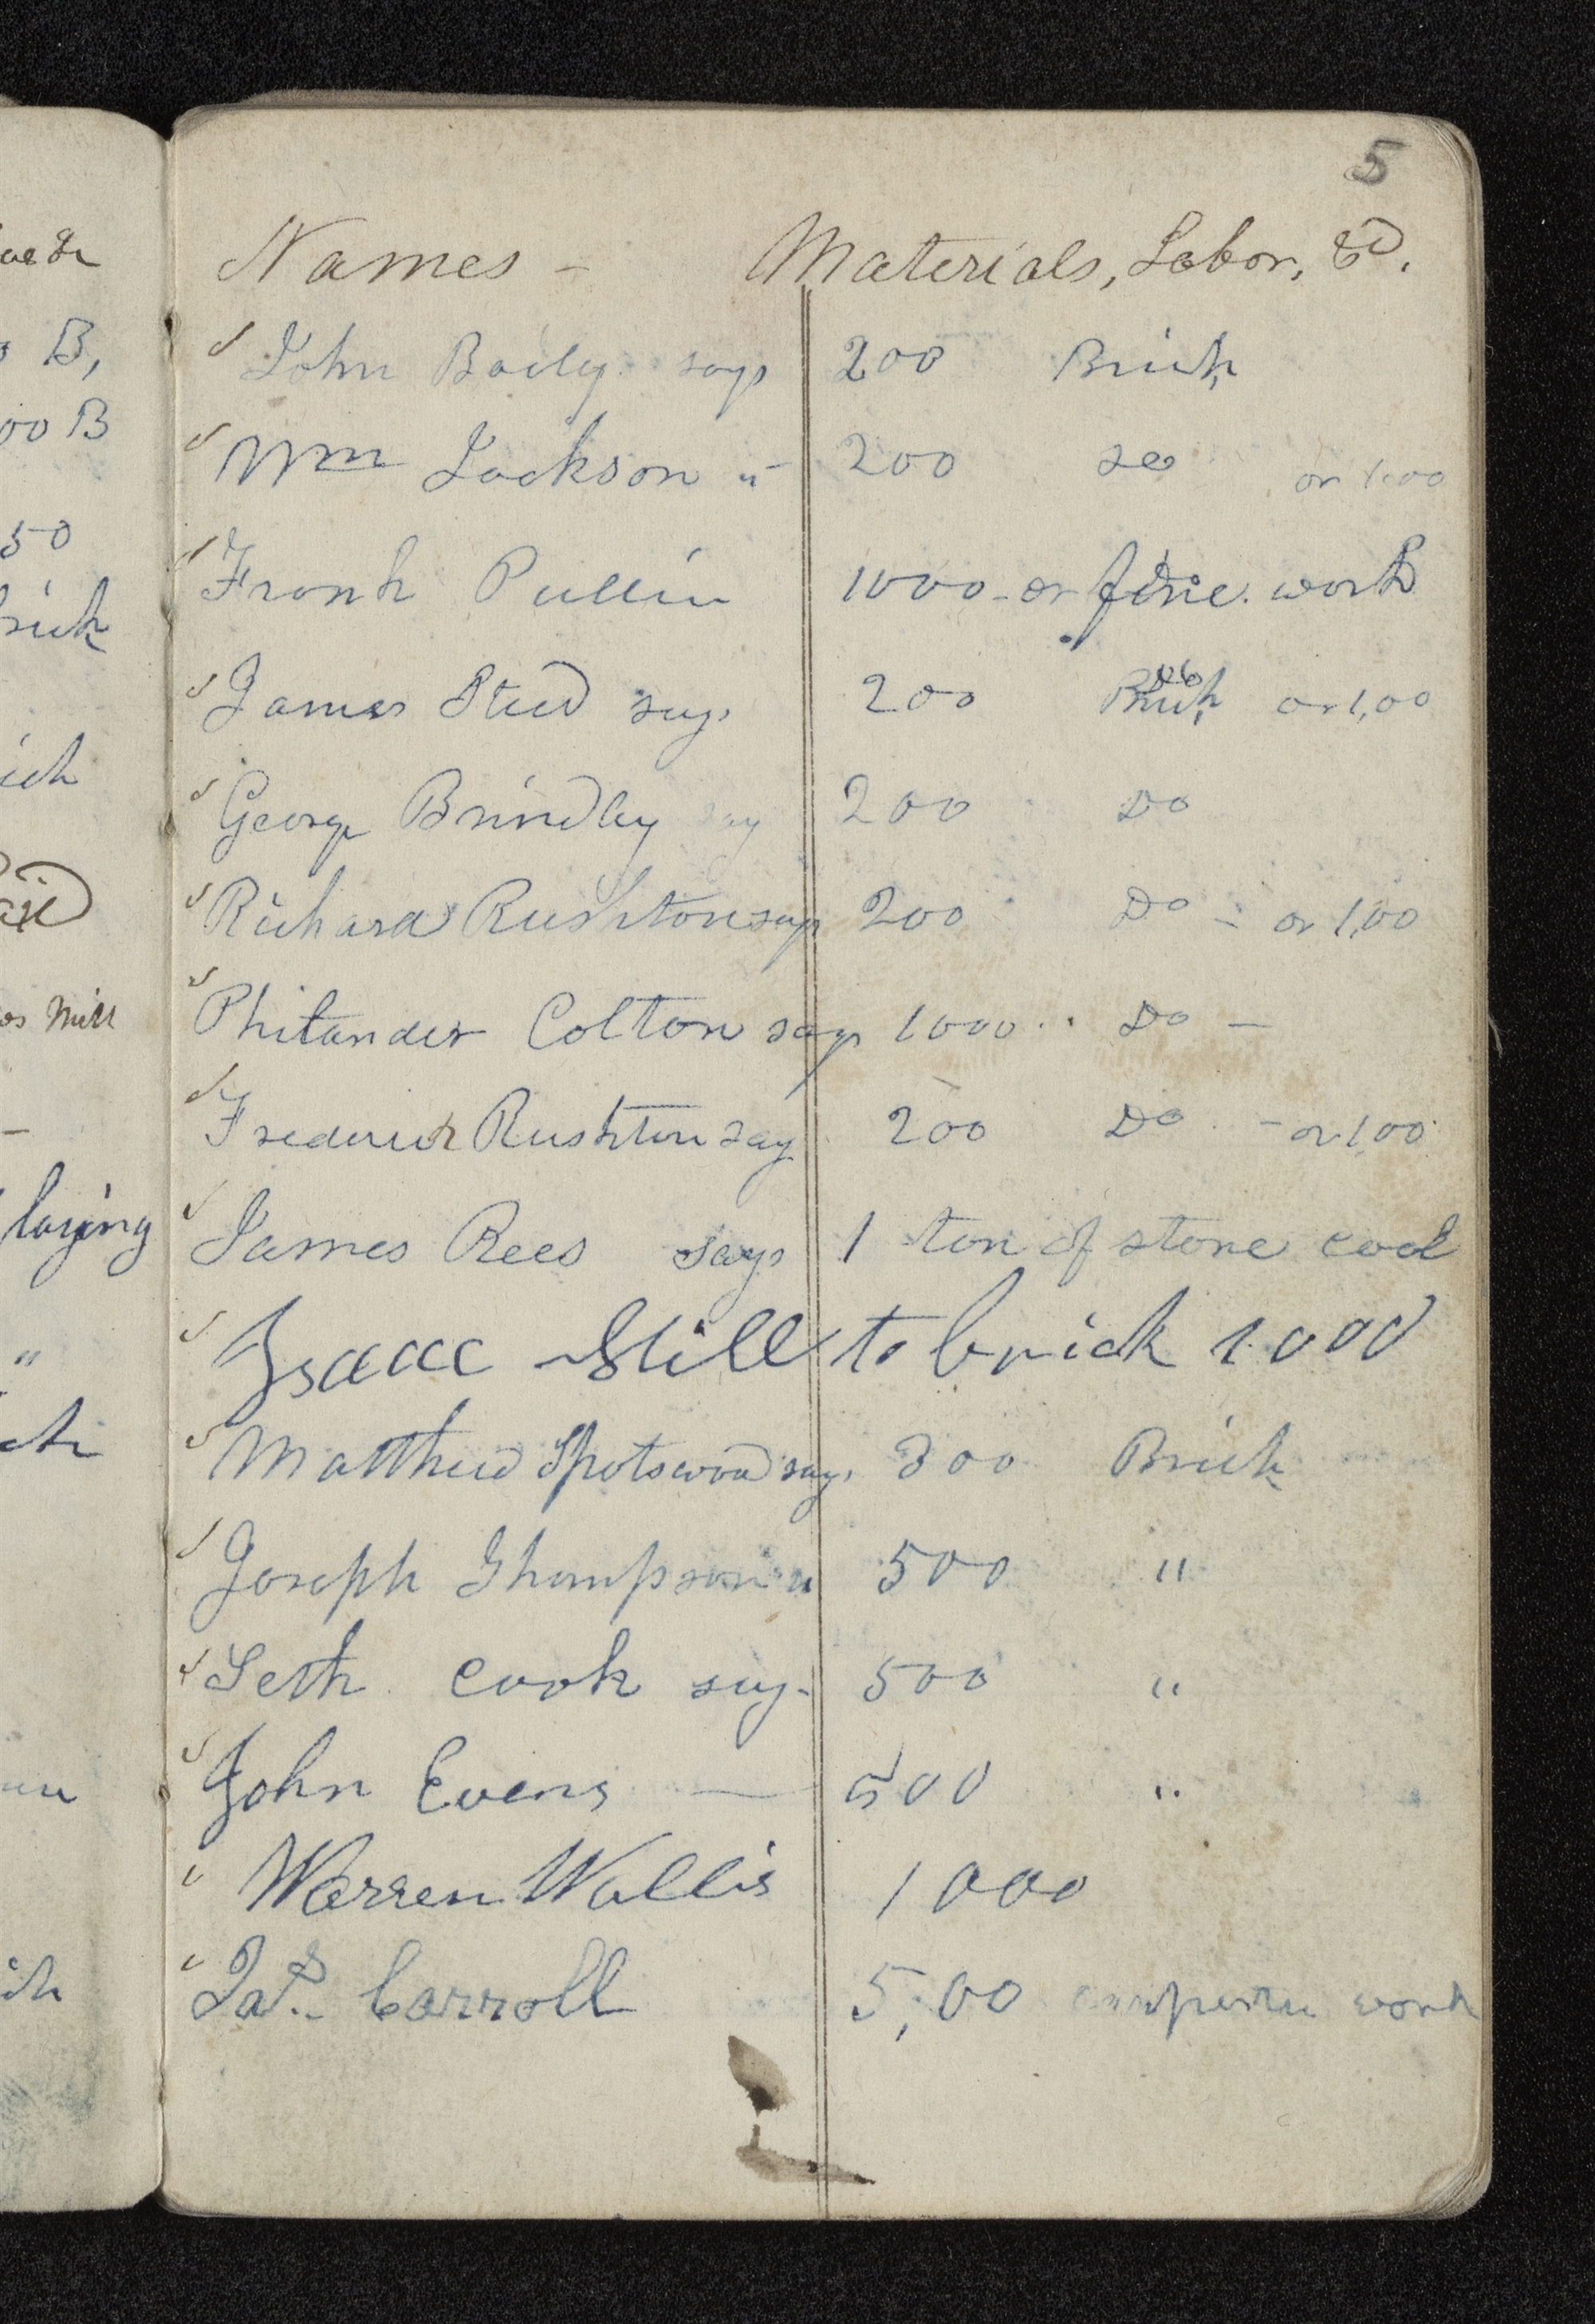 5
Names - Materials, Labor, &c.
John Baily says 200 Brick
Wm Jackson " 200 do or 1.00
Frank Pullin 1000 - or fine work
James Steed says 200 Brick or 1,00
George Brindley say 200 Do
Richard Rushton says 200 Do - or 1,00
Philander Colton says 1000 .. Do -
Frederick Rushton say 200 Do - or 1,00
James Rees says 1 ton of stone coal
Isaac Still to brick 1000
Matthew Spotswood says 300 Brick
Joseph Thompson " 500 "
Seth Cook say - 500 "
John Evens — 500 "
Warren Wallis 1000
Jas. Carroll 5,00 work
B,
00 B
50
Mill
laying
"